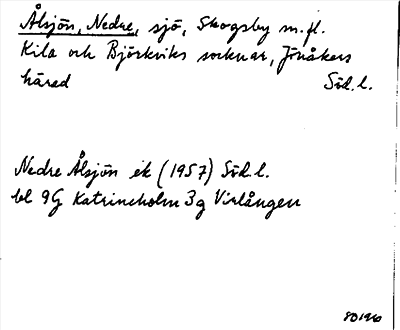 Ålsjön, Nedre, sjö, Skogsby m.fl.
Kila och Björkviks socknar, Jönåkers
härad Söd.l.
Nedre Ålsjön ek (1957) Söd.l.
bl 9G Katrineholm 3g Virlången
80196